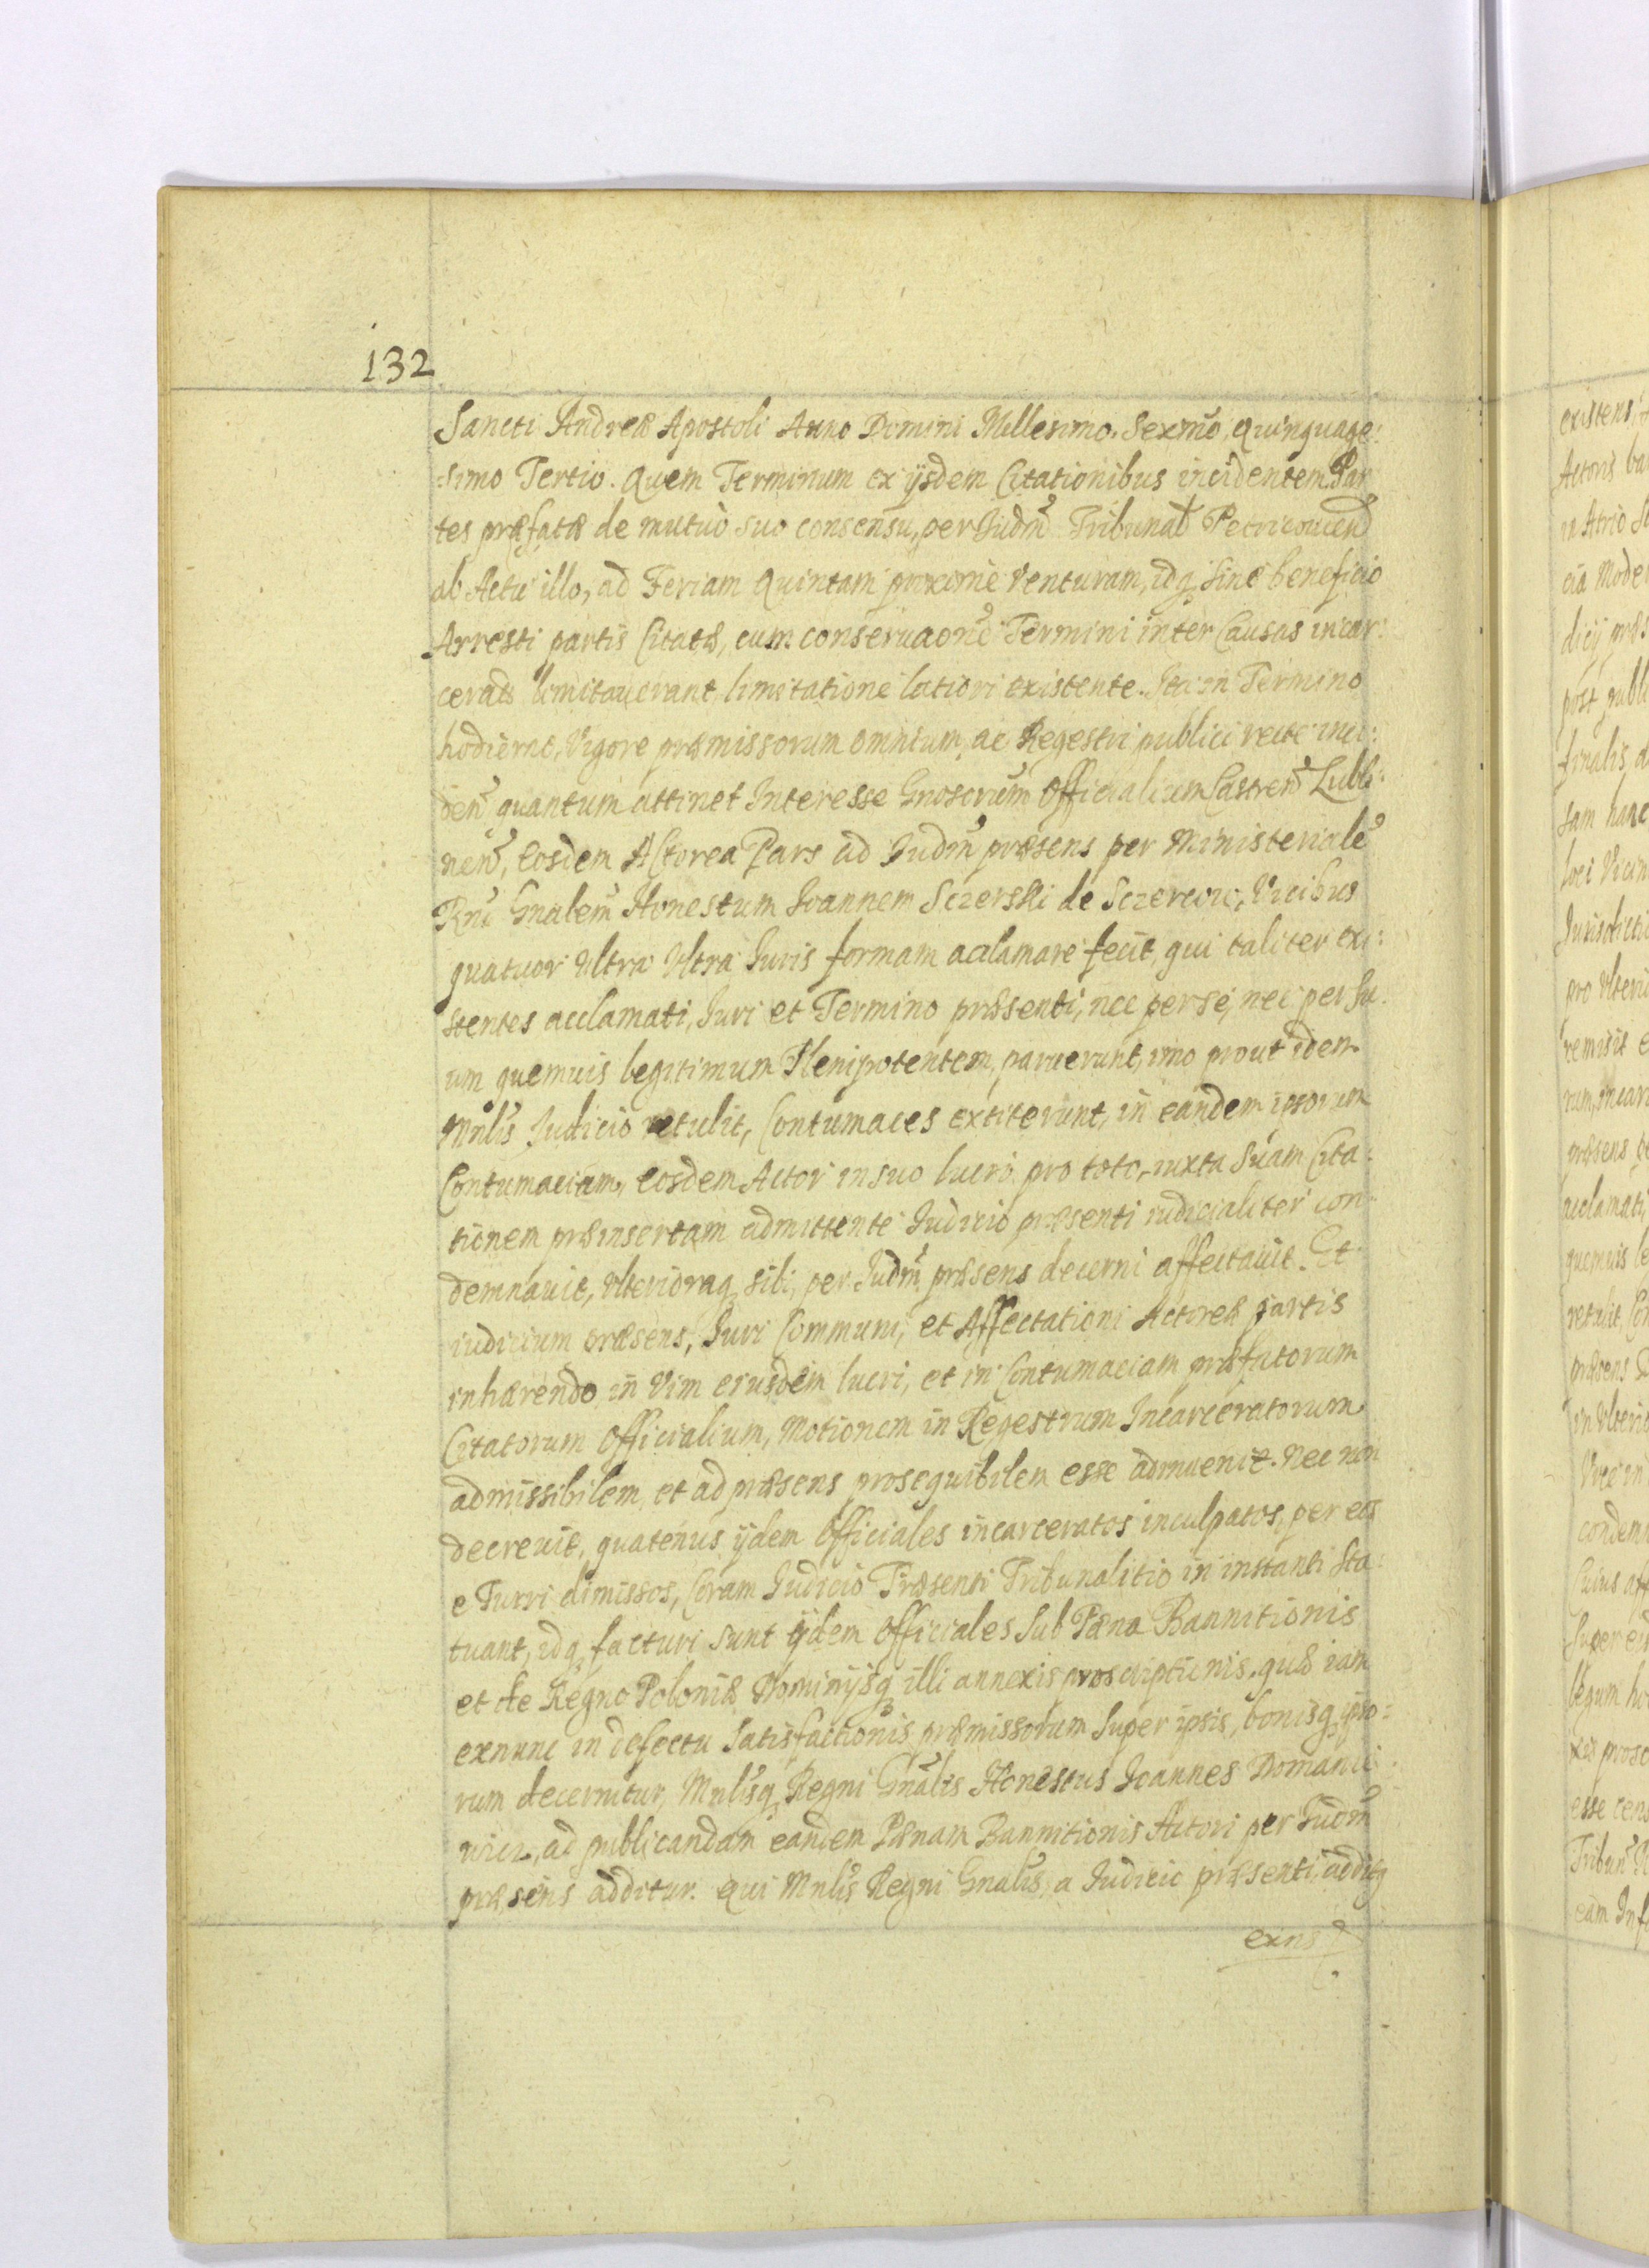 132
Sancti Andreæ Apostoli Anno Domini Millesimo. Sexmō, Quinquage:
:simo Tertio. Quem Terminum ex ijsdem Citationibus incidentem Par
tes præfatæ de mutuo suo consensu, per Judm̄ Tribunał Petricouien̄
ab Actu illo, ad Feriam Quintam proxime Venturam, idq, sine beneficio
Arresti partis Citatæ, cum conseruaone Termini inter Causas incar:
ceratā limitauerant, limitatione latiori existente. Ita in Termino
hodierno, Vigore præmissorum omnium, ac Regestri publici recte inci:
den̄ quantum attinet Interesse Gnosorum̄ Officialium Castren̄ Lubli:
nen̄, Eosdem Actorea Pars ad Judm̄ præsens per Ministerialē
Rni Gnalem̄ Honestum Ioannem Sczerski de Sczercow, Vicibus
quatuor Vltra Vltra Iuris formam acclamare fecit, qui taliter exi:
stentes acclamati, Iuri et Termino præsenti, nec per se, nec per su:
um quemuis legitimum Plenipotentem, paruerunt, imo prout idem
Mnlis Judicio retulit, Contumaces extiterunt, in eandem ipsorum
Contumaciam, eosdem Actor in suo lucro pro toto, iuxta suam Cita:
tionem præinsertam admittente Judicio præsenti iudicialiter con:
demnauit, Vlterioraq, sibi, per Judm̄ præsens decerni affectauit. Et
iudicium præsens, Iuri Communi, et Affectationi Actoreæ partis
inhærendo, in Vim eiusdem lucri, et in Contumaciam præfatorum
Citatorum Officialium, Motionem in Regestrum Incarceratorum
admissibilem, et ad præsens prosequibilem esse adinuenit. Nec non
decreuit, quatenus ijdem Officiales incarceratos inculpatos, per eos
e Turri dimissos, Coram Judicio Præsenti Tribunalitio in instanti sta:
tuant, idq, facturi sunt ijdem Officiales sub Pæna Bannitionis
et de Regno Poloniæ Dominijsq, illi annexis proscriptionis, quæ iam
exnunc in defectu satisfactionis præmissorum super ipsis, bonisq, ipso:
rum decernitur, Mnlisq, Regni Gnalis Honestus Joannes Domani
wicz, ad publicandam eandem Pænam Bannitionis Actori per Judm̄
præsens additur. Qui Mnlis Regni Gnalis, a Judicio præsenti, additq
exns